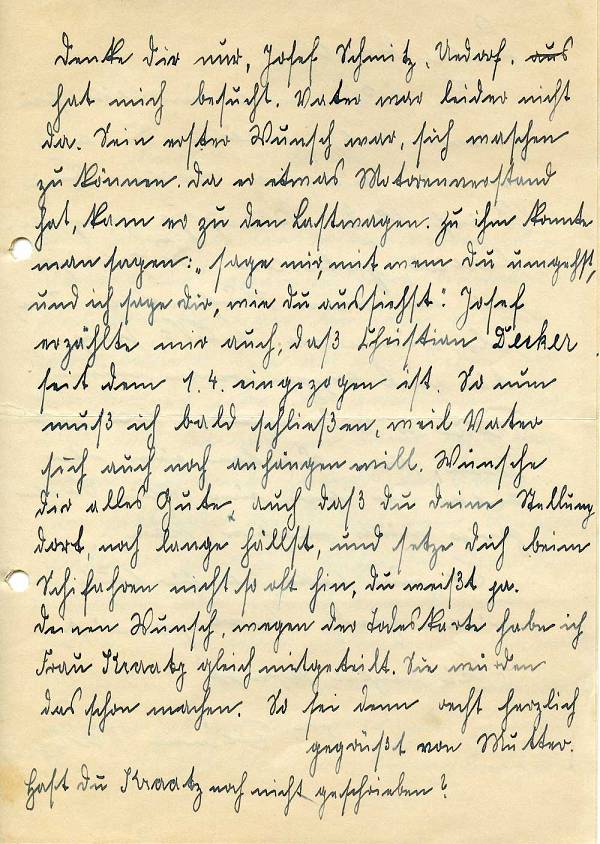 Denke dir nur, Josef Schmitz, Uedorf. aus
hat mich besucht. Vater war leider nicht
da. Sein erster Wunsch war, sich waschen
zu können. Da er etwas Motorenverstand
hat, kam er zu den Lastwagen. Zu ihm konnte
man sagen: „sage mir, mit wem du umgehst,
und ich sage dir, wie du aussiehst". Josef
erzählte mir auch, daß Christian Decker
seit dem 1.4. eingezogen ist. So nun
muß ich bald schließen, weil Vater
sich auch noch anhängen will. Wünsche
dir alles Gute, auch daß du deine Stellung
dort, noch lange hällst, und setze dich beim
Schifahren nicht so oft hin, du weißt ja.
Deinen Wunsch, wegen der Todeskarte habe ich
Frau Kraatz gleich mitgeteilt. Sie würden
das schon machen. So sei denn recht herzlich
gegrüßt von Mutter.
Hast du Kraatz noch nicht geschrieben?